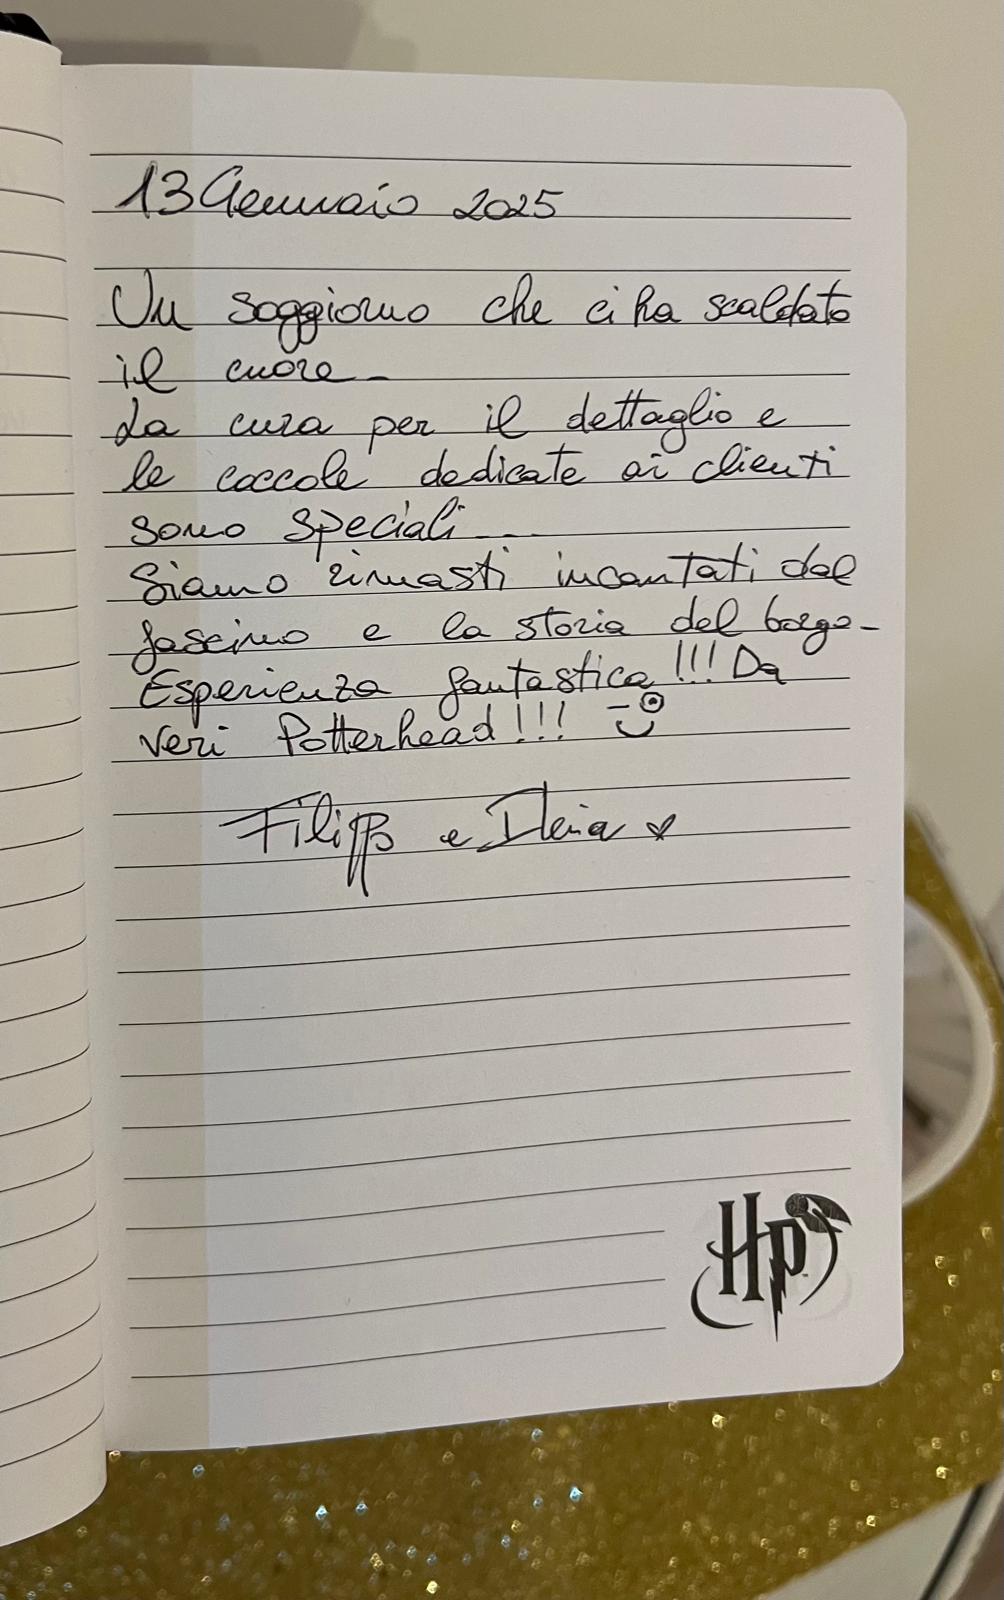 13 Gennaio 2025
Un soggiorno che ci ha scaldato
il cuore -
La cura per il dettaglio e
le coccole dedicate ai clienti
sono speciali ...
Siamo rimasti incantati dal
fascino e la storia del borgo -
Esperienza fantastica !!! Da
veri Potterhead !!!
Filippo e Ilenia
HP